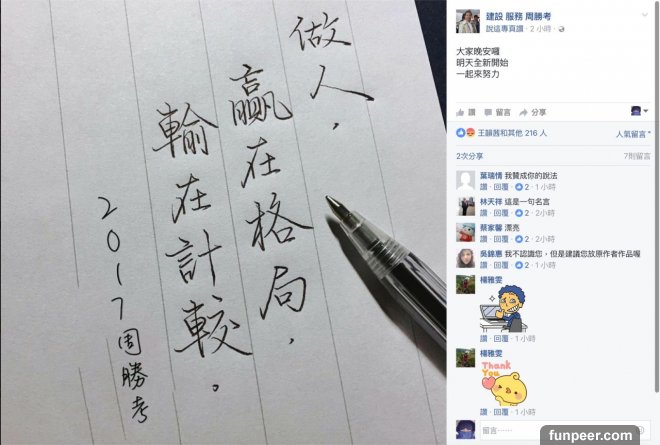 做人，
贏在格局，
輸在計較。
2017周勝考
建設 服務 周勝考
說這專頁讚 · 2 小時 ·
大家晚安囉
明天全新開始
一起來努力
讚 留言 分享
王韻茜和其他 216 人
人氣留言
2次分享
7則留言
葉瑞情 我贊成你的說法
讚 · 回覆 · 2 · 1 小時
林天祥 這是一句名言
讚 · 回覆 · 2 · 2小時
蔡家馨 漂亮
讚 · 回覆 · 2 · 2小時
吳錦惠 我不認識您，但是建議您放原作者作品喔
讚 · 回覆 · 2 · 1小時
楊雅雯
讚 · 回覆 · 1 小時
楊雅雯
Thank
You
讚 · 回覆 · 1 小時
留言⋯⋯
funpeer.com